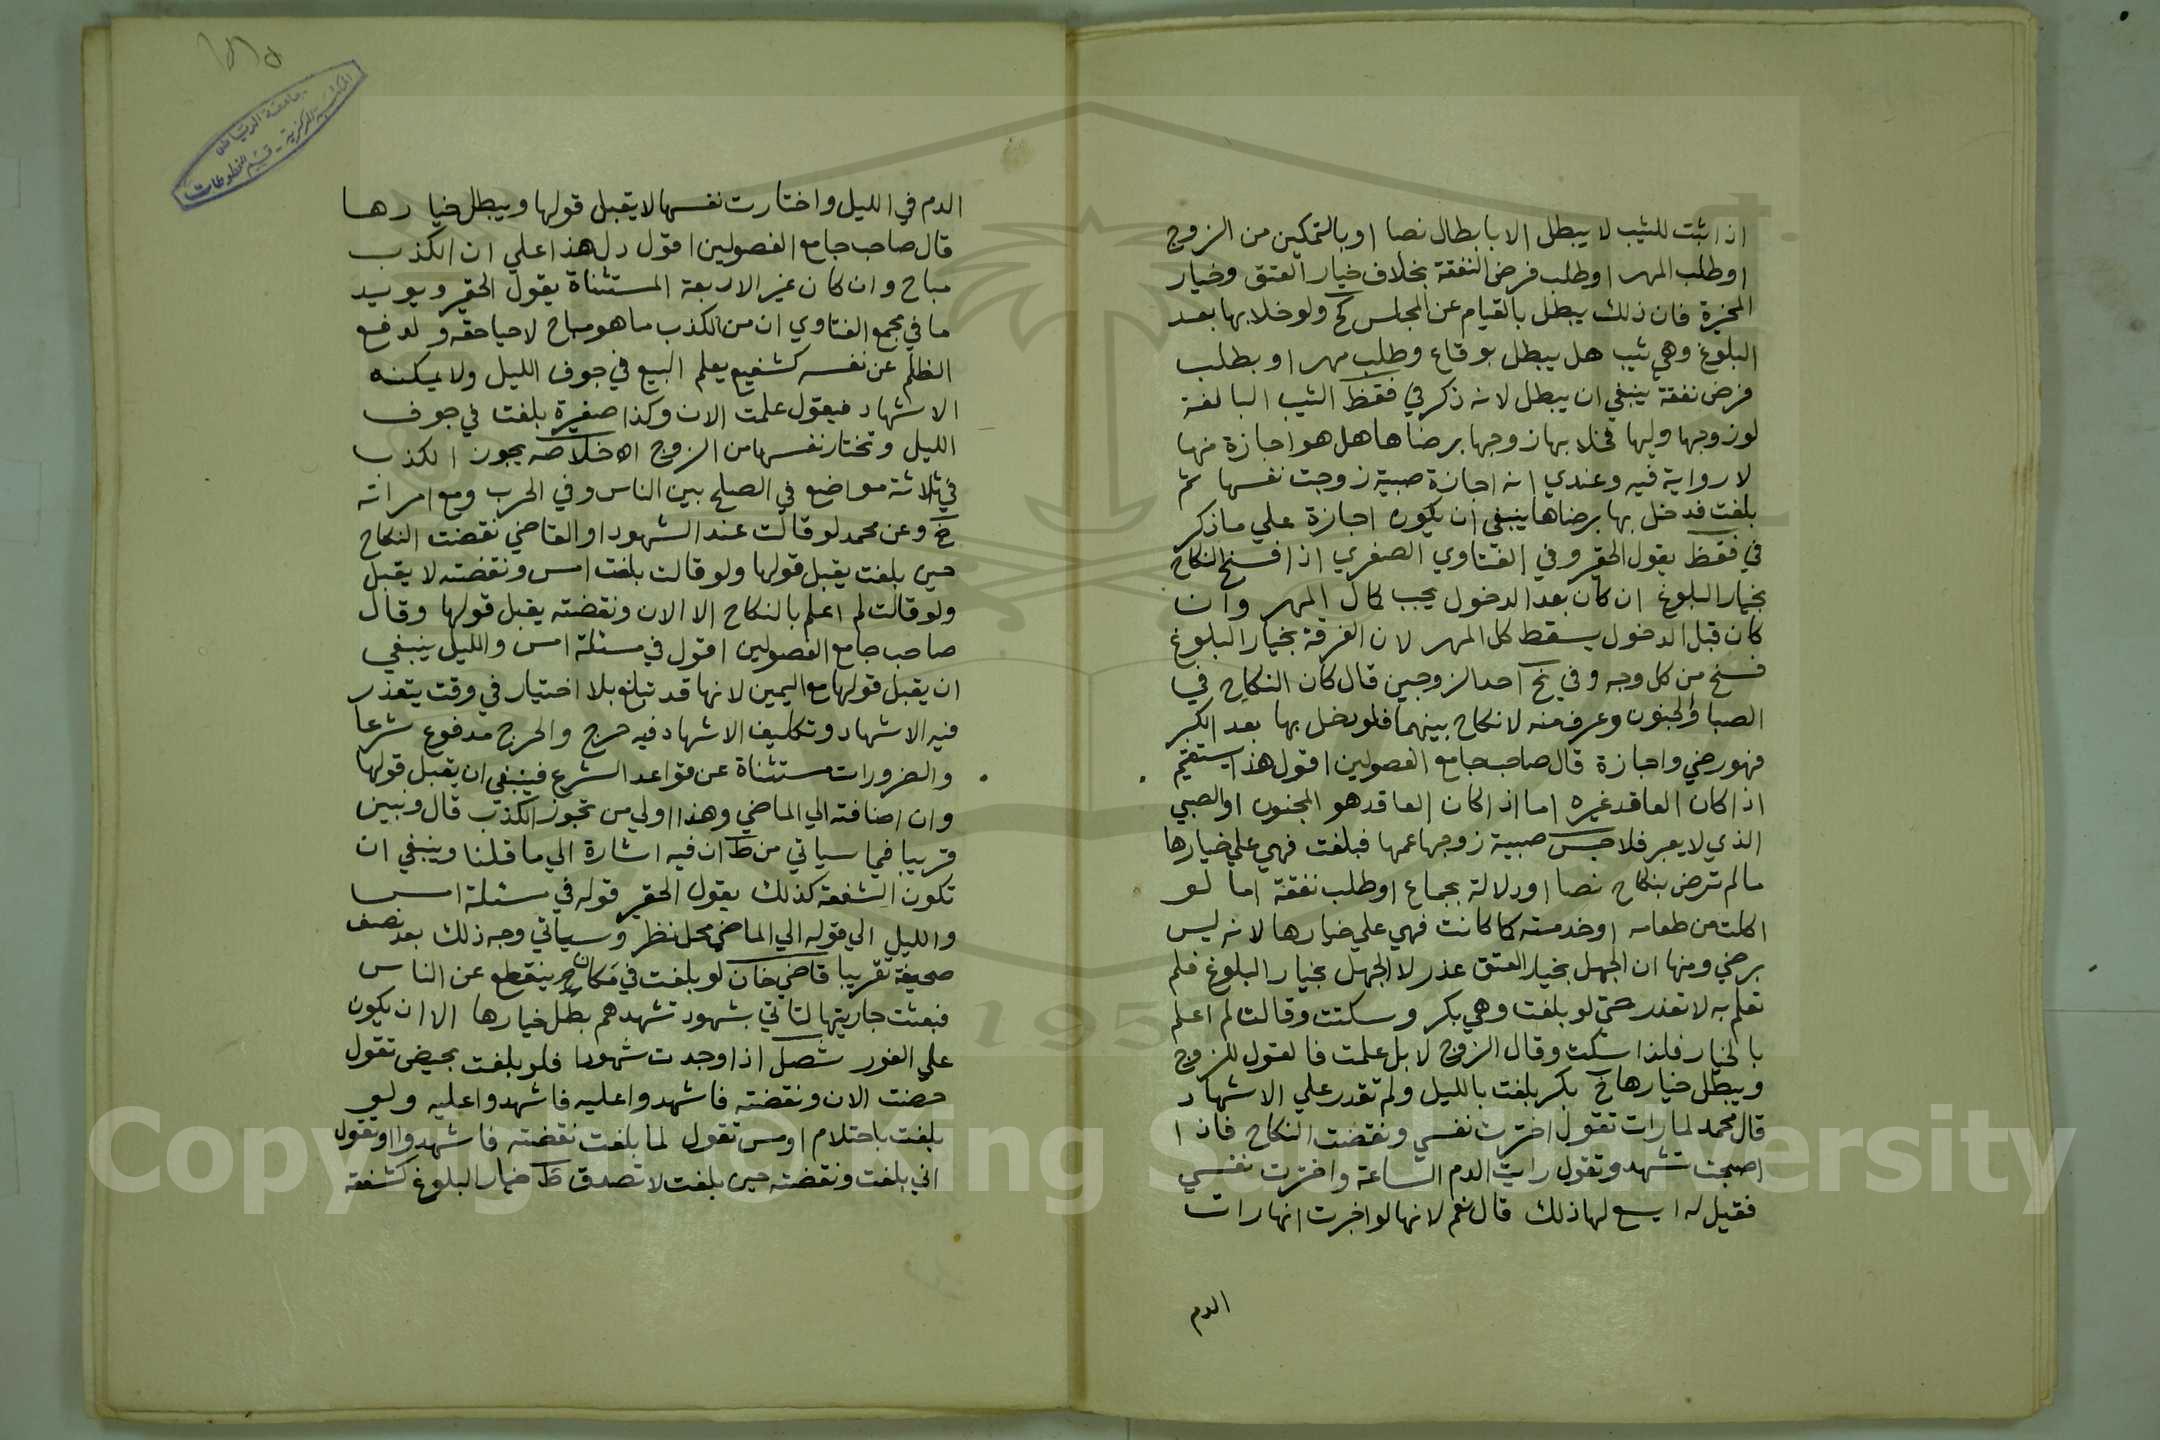 اذا ثبت للثيب لا يبطل الا بابطال نصا او بالتمكين من الزوج
او طلب المهر او طلب فرض النفقة بخلاف خيار العتق وخيار
المخيرة فان ذلك يبطل بالقيام عن المجلس ولو خلا بها بعد
البلوغ وهي ثيب هل يبطل بوقاع وطلب مهر او بطلب
فرض نفقة ينبغي ان يبطل لانه ذكر في فقظ الثيب البالغة
لو زوجها وليها فخلا بها زوجها برضاها هل هو اجازة منها
لا رواية فيه وعندي انه اجازة صبية زوجت نفسها ثم
بلغت فدخل بها برضاها ينبغي ان يكون اجازة علي ما ذكر
في فقظ يقول الحقير وفي الفتاوي الصغري اذا فسخ النكاح
بخيار البلوغ ان كان بعد الدخول يجب كمال المهر وان
كان قبل الدخول يسقط كل المهر لان الفرقة بخيار البلوغ
فسخ من كل وجه وفي احد الزوجين قال كان النكاح في
الصبا والجنون وعرف منه لا نكاح بينهما فلو دخل بها بعد الكبر
فهو رضي واجازة قال صاحب جامع الفصولين اقول هذا يستقيم
اذا كان العاقد غيره اما اذا كان العاقد هو المجنون او الصبي
الذي لا يعبر فلا صبية زوجها عمها فبلغت فهي علي خيارها
ما لم ترض بنكاح نصا او دلالة بجماع او طلب نفقة اما لو
اكلت من طعامه او خدمته كما كانت فهي علي خيارها لانه ليس
برضي ومنها ان الجهل بخيار العتق عذر لا الجهل بخيار البلوغ فلم
تعلم به لا تعذر حتي لو بلغت وهي بكر وسكتت وقالت لم اعلم
بالخيار فلذا سكت وقال الزوج لا بل علمت فالقول للزوج
ويبطل خيارها بكر بلغت بالليل ولم تقدر علي الاشهاد
قال محمد لما رات تقول اخترت نفسي ونقضت النكاح فاذا
اصبحت تشهد وتقول رايت الدم الساعة واخترت نفسي
فقيل له ايسع لها ذلك قال نعم لانها لو اخبرت انها رات
الدم
الدم في الليل واختارت نفسها لا يقبل قولها ويبطل خيارها
قال صاحب جامع الفصولين اقول دل هذا علي ان الكذب
مباح وان كان غير الاربعة المستثناة يقول الحقير ويويد
ما في مجمع الفتاوي ان من الكذب ما هو مباح لاحيا حقه ولدفع
الظلم عن نفسه كشفيع يعلم البيع في جوف الليل ولا يمكنه
الاشهاد فيقول علمت الان وكذا صغيرة بلغت في جوف
الليل وتختار نفسها من الزوج اه خلاصه يجوز الكذب
في ثلاثة مواضع في الصلح بين الناس وفي الحرب ومع امراته
وعن محمد لو قالت عند الشهود او القاضي نقضت النكاح
حين بلغت يقبل قولها ولو قالت بلغت امس ونقضته لا يقبل
ولو قالت لم اعلم بالنكاح الا الان ونقضته يقبل قولها وقال
صاحب جامع الفصولين اقول في مسئلة امس والليل ينبغي
ان يقبل قولها مع اليمين لانها قد تبلغ بلا اختيار في وقت يتعذر
فيه الاشهاد وتكليف الاشهاد فيه حرج والحرج مدفوع شرعا
والضرورات مستثناة عن قواعد الشرع فينبغي ان يقبل قولها
وان اضافته الي الماضي وهذا اولي من تجوز الكذب قال ونبين
قريبا فيما سياتي من ط ان فيه اشارة الي ما قلنا وينبغي ان
تكون الشفعة كذلك يقول الحقير قوله في مسئلة امس
والليل الي قوله الي الماضي محل نظر وسياتي وجه ذلك بعد نصف
صحيفة تقريبا قاضي خان لو بلغت في مكان ينقطع عن الناس
فبعثت جاريتها لتاتي بشهود تشهدهم بطل خيارها الا ان يكون
علي الفور اذا وجدت شهودا فلو بلغت بحيض تقول
حضت الان ونقضته فاشهدوا عليه فاشهدوا عليه ولو
بلغت باحتلام او سن تقول لما بلغت نقضته فاشهدوا او تقول
اني بلغت ونقضته حين بلغت لا تصدق ط خيار البلوغ كشفعة
جامعة الرياض
المكتبة المركزية - قسم المخطوطات
Copyright © King Saud University
1957